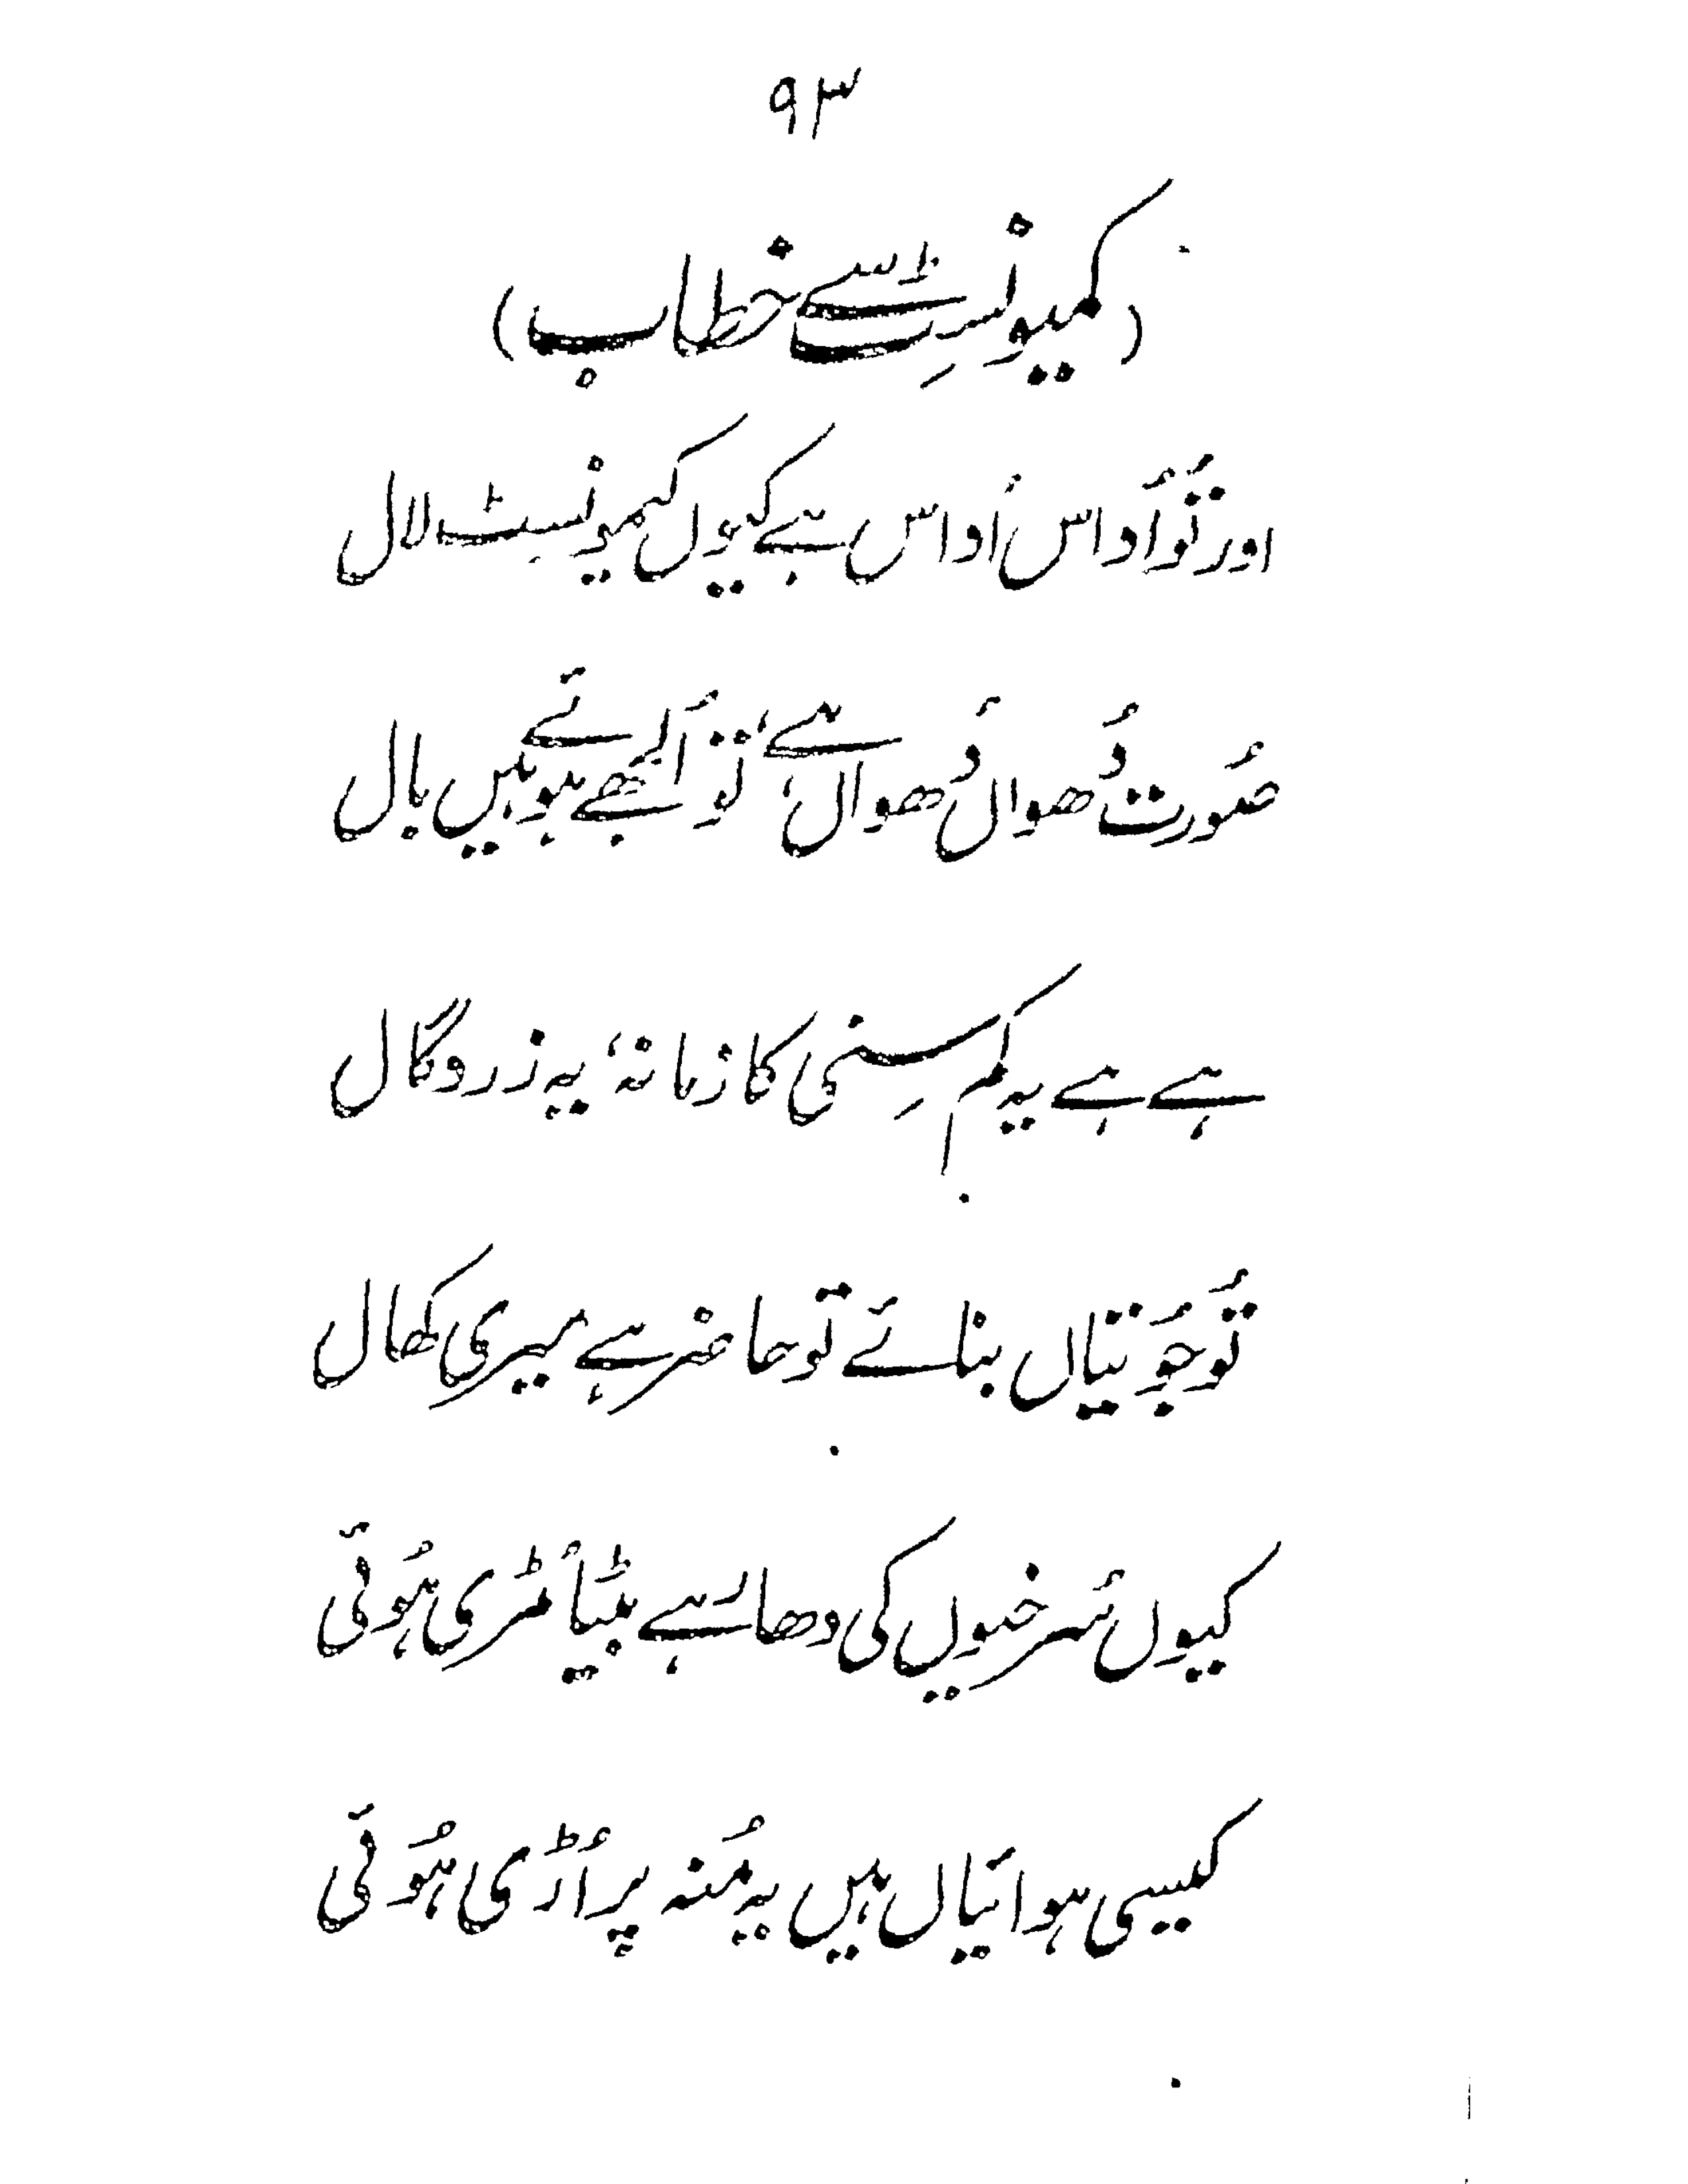 ۹۳
(کمیونسِٹ سے خطاب)
اور تُو اُداس اُداس ہے کیوں کیمونسِٹ لال
صُورت دُھواں دُھواں ہے، تو اُلجھے ہوئے ہیں بال
ہے ہے یہ کم سِنی کا زمانہ، یہ زرد گال
تُو جُوتیاں بنائے تو حاضر ہے میری کھال
کیوں سُرخیوں کی دھار ہے بٹیا مُڑی ہُوئی
کیسی ہوائیاں ہیں یہ مُنہ پر اُڑی ہُوئی